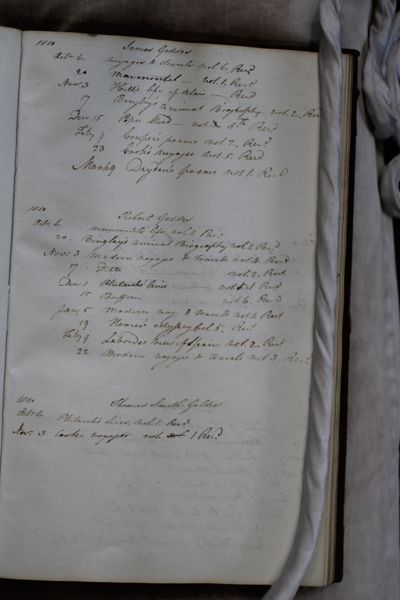 1810 James Geddes
Octr 6. voyages & travels vol 6. Recd
20 Marmontel — vol 1. Recd
Novr 3 Hill's life of Blair — Recd
17 Bingley's animal Biography vol. 2. Recd
Decr 15 Pope's Iliad — vol. 5th Recd
Feby 9 Cowper's poems vol 2. Recd
23 Cooke's voyages vol 5. Recd
March 9 Dryden's poems vol 1. Recd
1810 Robert Geddes
Octr 6. marmontel's life vol. 1 Recd
20. Bingley's animal Biography vol. 2. Recd
Novr 3 Modern voyages & travels vol 4. Recd
17 Ditto vol 2. Recd
Decr 1 Plutarch's lives vol 1 Recd
15 Buffon vol 6. Recd
Jany 5 Modern voy. & travels vol 1. Recd
19 Homer's odyssey vol 5. Recd
Feby 9 Labordes view of Spain vol 2. Recd
22 Modern voyages & travels vol 3. Recd
1810 Thomas Smith Geddes
Octr 6 Plutarch's Lives vol 1. Recd
Novr 3 Cooke voyages vol. 1 Recd